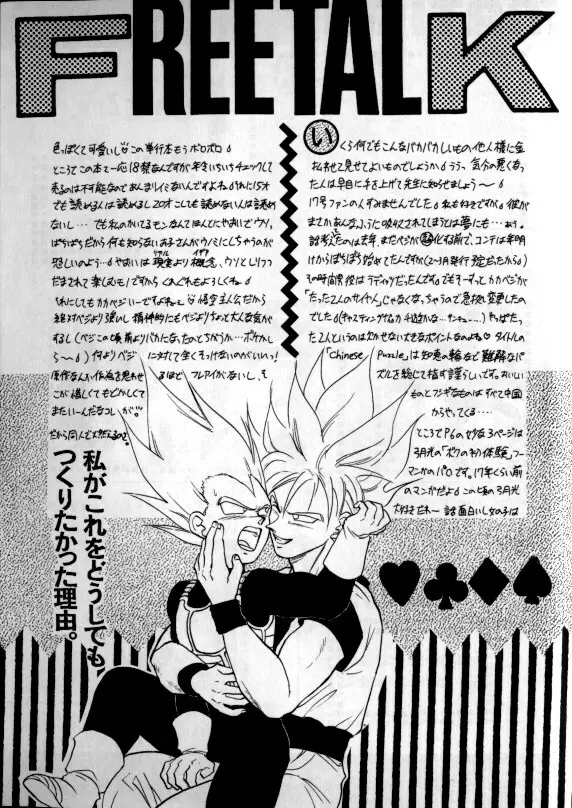 FREE TALK
いくら何でもこんなバカバカしいもの他人様に金
払わせて見せてよいものでしょうか。ううっ、気分の悪くなっ
た人は早目に手を上げて先生に知らせましょう〜
17号ファンの人すみませんでした。私も好きですが。彼が
まさかあんなふうに吸収されてしまうとは夢にも…
話考えたのは去年、まだベジが化する前で、コンテは年明
けからぱらぱら始めてたんですが(2〜3月発行予定だったから)
その時点の役はラディッツだったんです。でもそーすっと、カカベジが
「たった2人のサイヤ人」じゃなくなっちゃうので急拠変更したの
でした
た2人というのは欠かせない大きなポイントなのよね♡ タイトルの
「Chinese Puzzle」は知恵の輪など難解なパ
ズルを総じて指す語らしいです。
ものとフシギなものはすべて中国
からやってくる…
ところでP6の
3月光の「ボクの初体験」っつー
マンガのパロです。17年くらい前
のマンガだよ。この頃の3月光
大好きだれー 話面白いし女の子は
色っぽくて可愛いし♡この単行本もうボロボロ。
ところでこの本て一応18禁なんですが年をいちいちチェックして
売るのは不可能なので、あんまりイミないんですよね。それに15才
でも読める人は読めるし20才こしても読めない人は読め
ないし… でも私のかいてるモンなんてほんとにやおいでウソっ
ぱちばっかだから何も知らないお子さんがウノミにしちゃうのが
恐しいのよう… やおいは現実より概念、ウソとしりつつ
だまされて楽しむモノですからくれぐれもよろしくね。
それにしてもカカベジいーですよねェ 悟空主人公だから
絶対ベジより強いし精神的にもベジよりちょっと大人な気が
するし
ら〜 何よりベジに対して全くそっけないのがいい!
原作なんか作為を思わせるほどフォロアがないし、そ
こが惜しくてもどかしくて
またいーんだなコレが♡
だから同人で燃えるのさ。
私がこれをどうしても
つくりたかった理由。